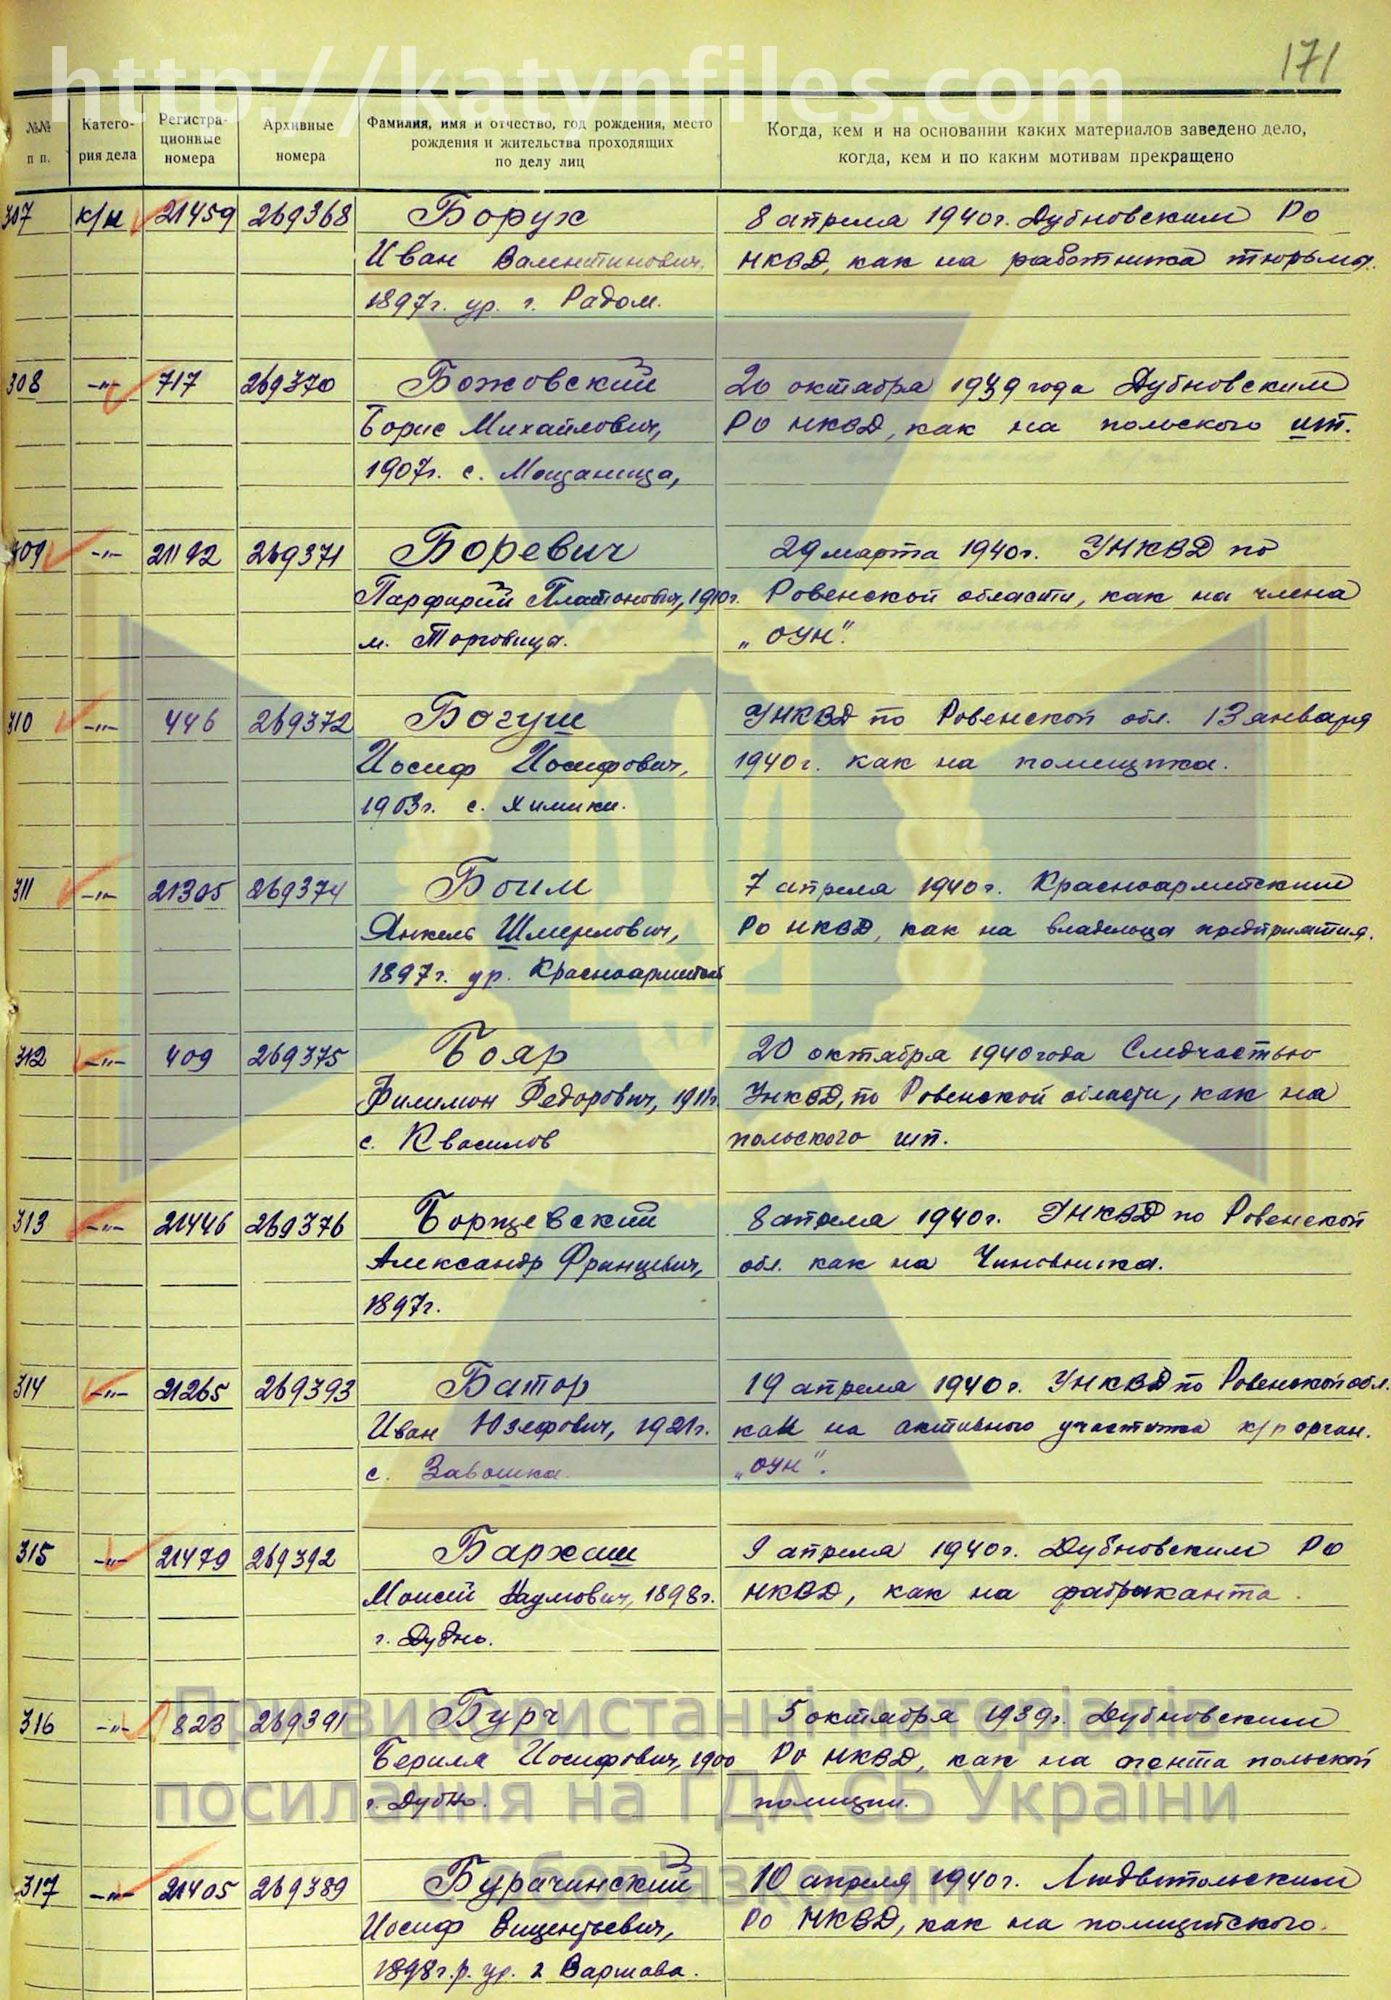 http://katynfiles.com
171
№№ п п.
Катего-
рия дела
Регистра-
ционные
номера
Архивные
номера
Фамилия, имя и отчество, год рождения, место
рождения и жительства проходящих
по делу лиц
Когда, кем и на основании каких материалов заведено дело,
когда, кем и по каким мотивам прекращено
307 к/н 21459 269368 Борух 8 апреля 1940г. Дубновским Ро
Иван Валентинович, НКВД, как на работника тюрьмы.
1897г. ур. г. Радом.
308 -"- 717 269370 Божовский 20 октября 1939 года Дубновским
Борис Михайлович, РО НКВД, как на польского шп.
1907г. с. Мощаница,
309 -"- 21192 269371 Боревич 29 марта 1940г. УНКВД по
Парфирий Платонович, 1910г. Ровенской области, как на члена
м. Торговица. „ОУН".
310 -"- 446 269372 Богуш УНКВД по Ровенской обл. 13 января
Иосиф Иосифович, 1940г. как на помещика.
1903г. с. Химики.
311 -"- 21305 269374 Боим 7 апреля 1940г. Красноармейским
Янкель Шмерлович, Ро НКВД, как на владельца предприятия.
1897г. ур. Красноармейск
312 -"- 409 269375 Бояр 20 октября 1940 года Следчастью
Филимон Федорович, 1911г. УНКВД, по Ровенской области, как на
с. Квасилов польского шп.
313 -"- 21446 269376 Борщевский 8 апреля 1940г. УНКВД по Ровенской
Александр Францевич, обл. как на Чиновника.
1897г.
314 -"- 21265 269393 Батор 19 апреля 1940г. УНКВД по Ровенской обл.
Иван Юзефович, 1921г. как на активного участника к/р орган.
с. Завошка. „ОУН".
315 -"- 21479 269392 Бархаш 9 апреля 1940г. Дубновским Ро
Моисей Наумович, 1898г. НКВД, как на фабриканта.
г. Дубно.
316 -"- 823 269391 Бурч 5 октября 1939г. Дубновским
Берила Иосифович, 1900 Ро НКВД, как на агента польской
г. Дубно. полиции.
317 -"- 21405 269389 Бурачинский 10 апреля 1940г. Людвипольским
Иосиф Вицентьевич, Ро НКВД, как на полицейского.
1898г.р. ур. г Варшава.
При використанні матеріалів
посилання на ГДА СБ України
є обов'язковим